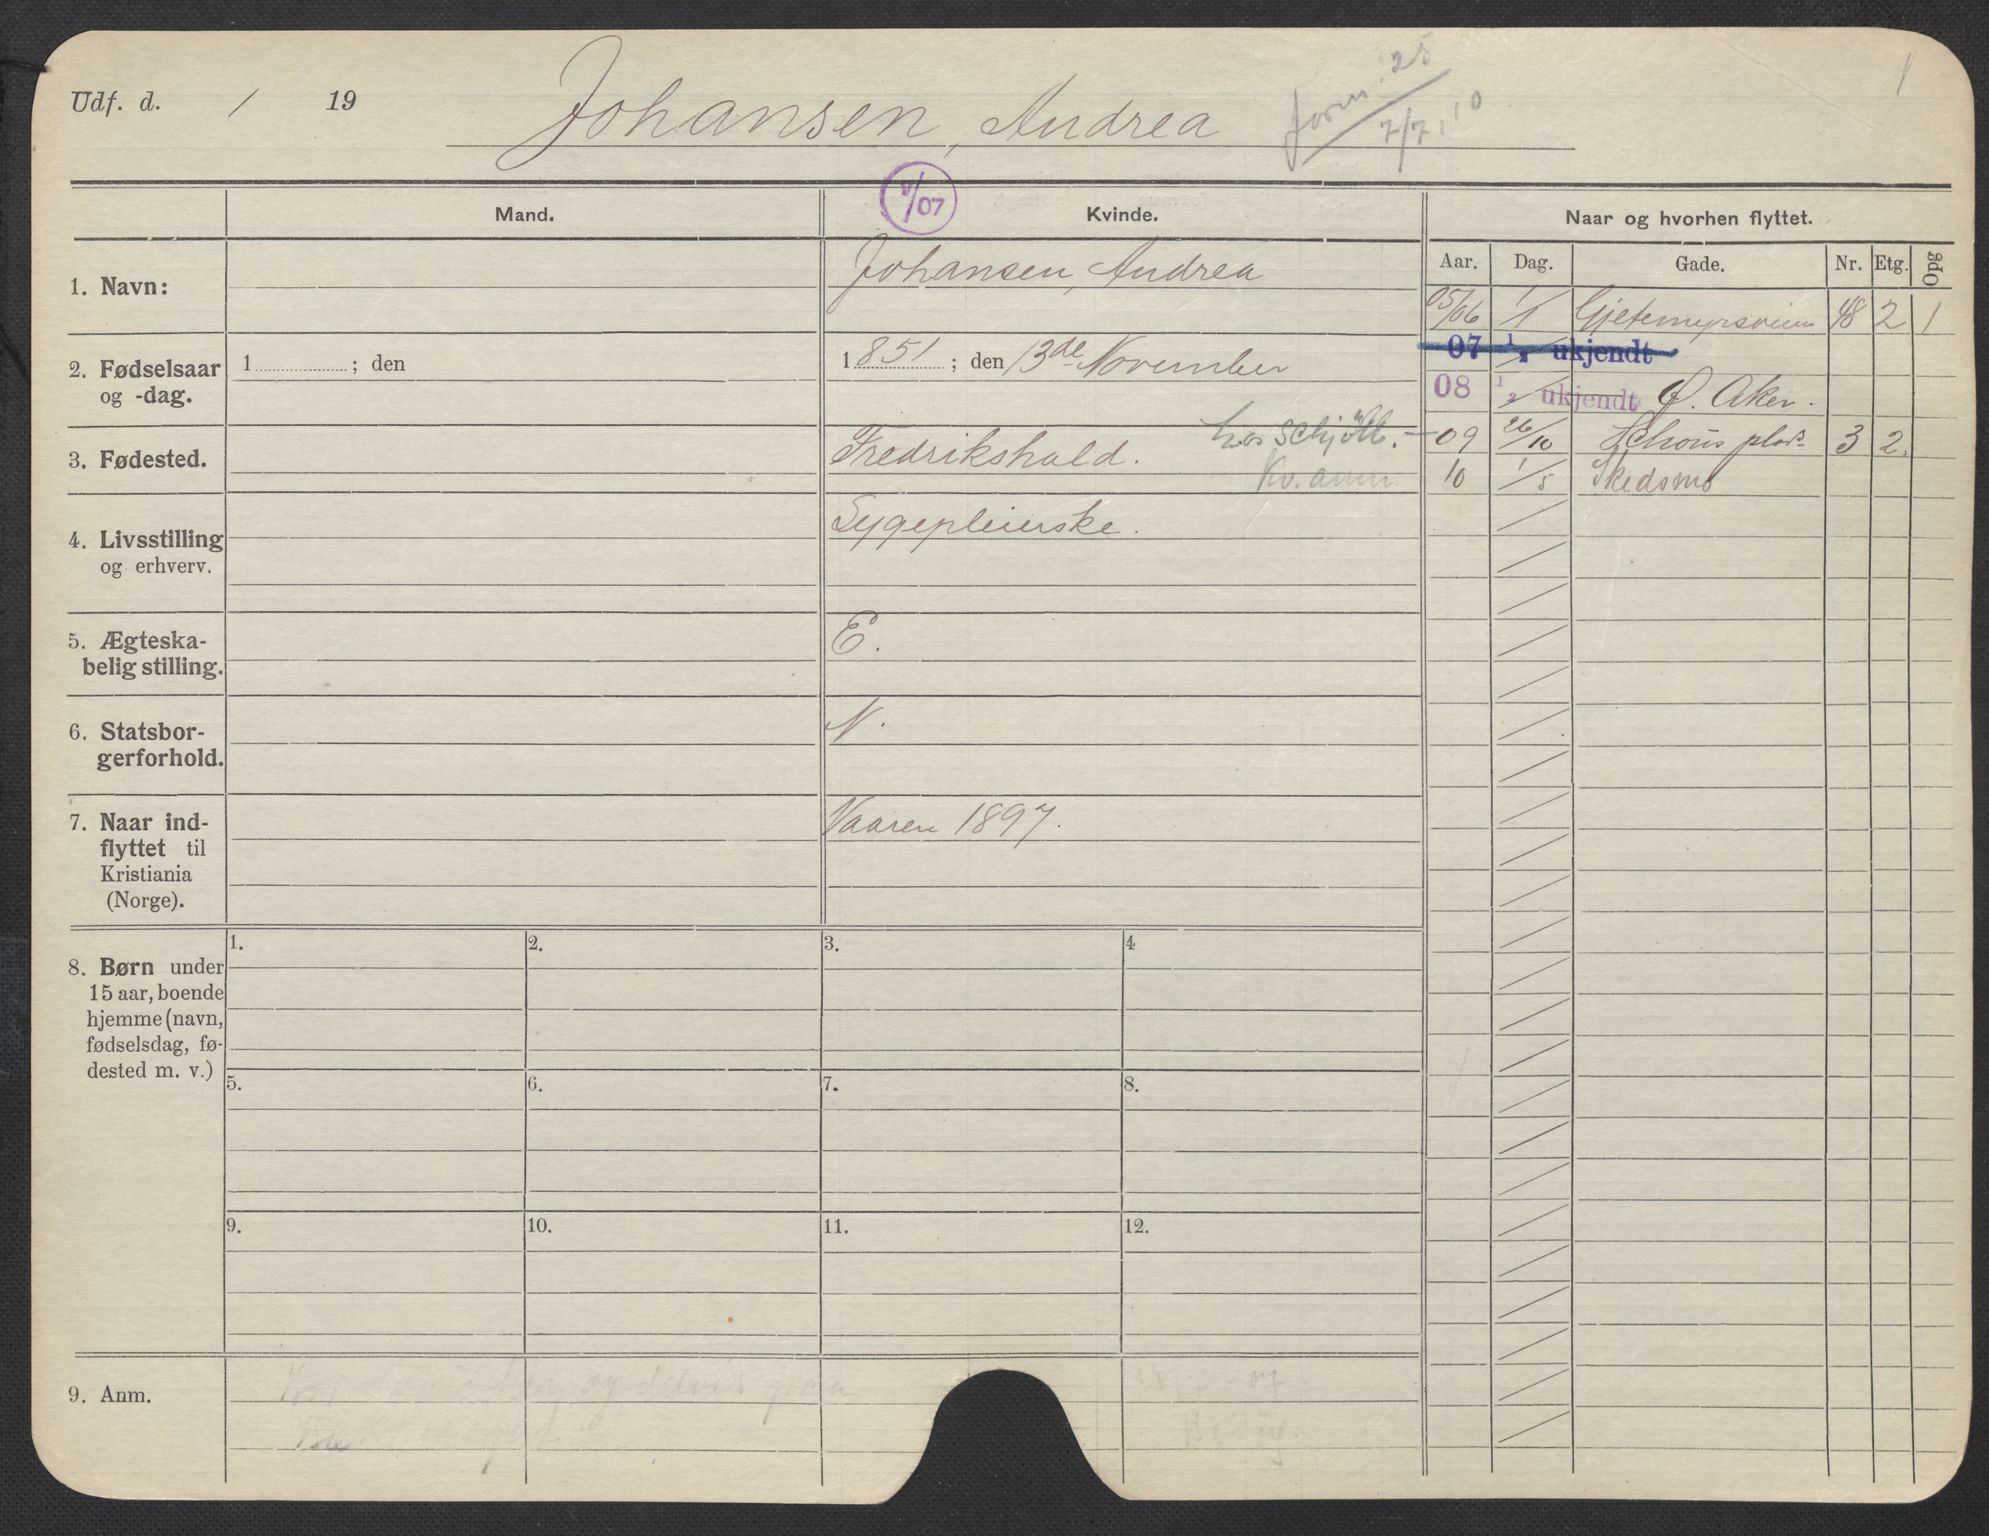 Udf. d. / 19
Johansen, Andrea
7/7.10
V/07
Mand. Kvinde. Naar og hvorhen flyttet.
Aar. Dag. Gade. Nr. Etg. Opg
1. Navn:
Johansen, Andrea
2. Fødselsaar
og -dag.
1 ; den
1851 ; den 13de November
3. Fødested.
Fredrikshald.
hos
4. Livsstilling
og erhverv.
Sygepleierske.
5. Ægteska-
belig stilling.
E.
6. Statsbor-
gerforhold.
N.
7. Naar ind-
flyttet til
Kristiania
(Norge).
Vaaren 1897.
05/06 1/1 Gjetemyrsveien 48 2 1
07 1/2 ukjendt
08 1/2 ukjendt Ø. Aker.
09 26/10 Schous plads 3 2.
10 1/5 Skedsmo
8. Børn under
15 aar, boende
hjemme (navn,
fødselsdag, fø-
dested m. v.)
1. 2. 3. 4
5. 6. 7. 8.
9. 10. 11. 12.
9. Anm.